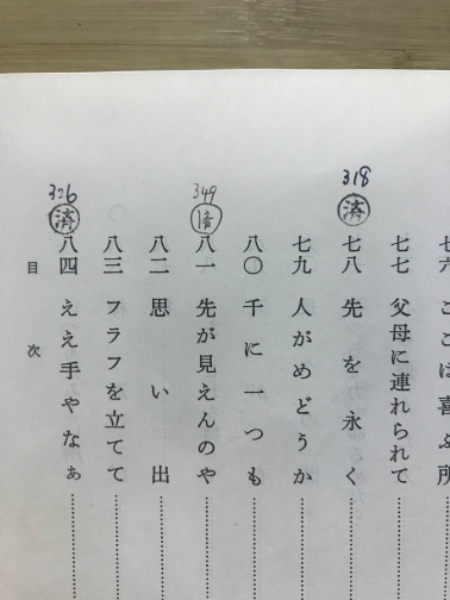 七六 ここは喜ぶ所
七七 父母に連れられて
318
済
七八 先を永く
七九 人がめどうか
八〇 千に一つも
349
八一 先が見えんのや
八二 思い出
八三 フラフを立てて
326
済
八四 ええ手やなぁ
目次